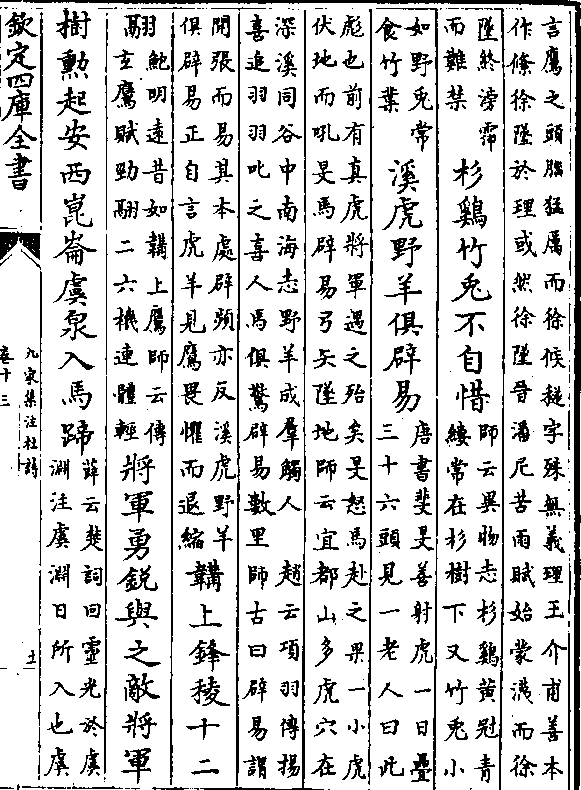 言鷹之頭腦猛厲而徐候字殊無義理王介甫善本
作條徐墜於理或然徐墜晉潘尼苦雨賦始蒙瀎而徐
墜終滂霈
而難禁
杉鷄竹兎不自惜
師云異物志杉鷄黄冠青
緌常在杉樹下又竹兎小
如野兎常
食竹葉
溪虎野羊俱辟易
唐書斐旻善射虎一日疊
三十六頭見一老人曰此
彪也前有真虎將軍遇之殆矣旻怒馬赴之果一小虎
伏地而吼旻馬辟易弓矢墜地師云宜都山多虎穴在
深溪同谷中南海志野羊成羣觸人 趙云項羽傳揚
喜追羽羽叱之喜人馬俱驚辟易數里師古曰辟易謂
開張而易其本處辟頻亦反溪虎野羊
俱辟易正自言虎羊見鷹畏懼而退縮
韝上鋒稜十二
翮
鮑明遠昔如韝上鷹師云傳
玄鷹賦勁翮二六機連體輕
將軍勇鋭與之敵將軍
樹勲起安西崑崙虞泉入馬蹄
薛云楚詞曰靈光於虞
淵注虞淵日所入也虞
欽定四庫全書
九家集注杜詩
卷十三
十一